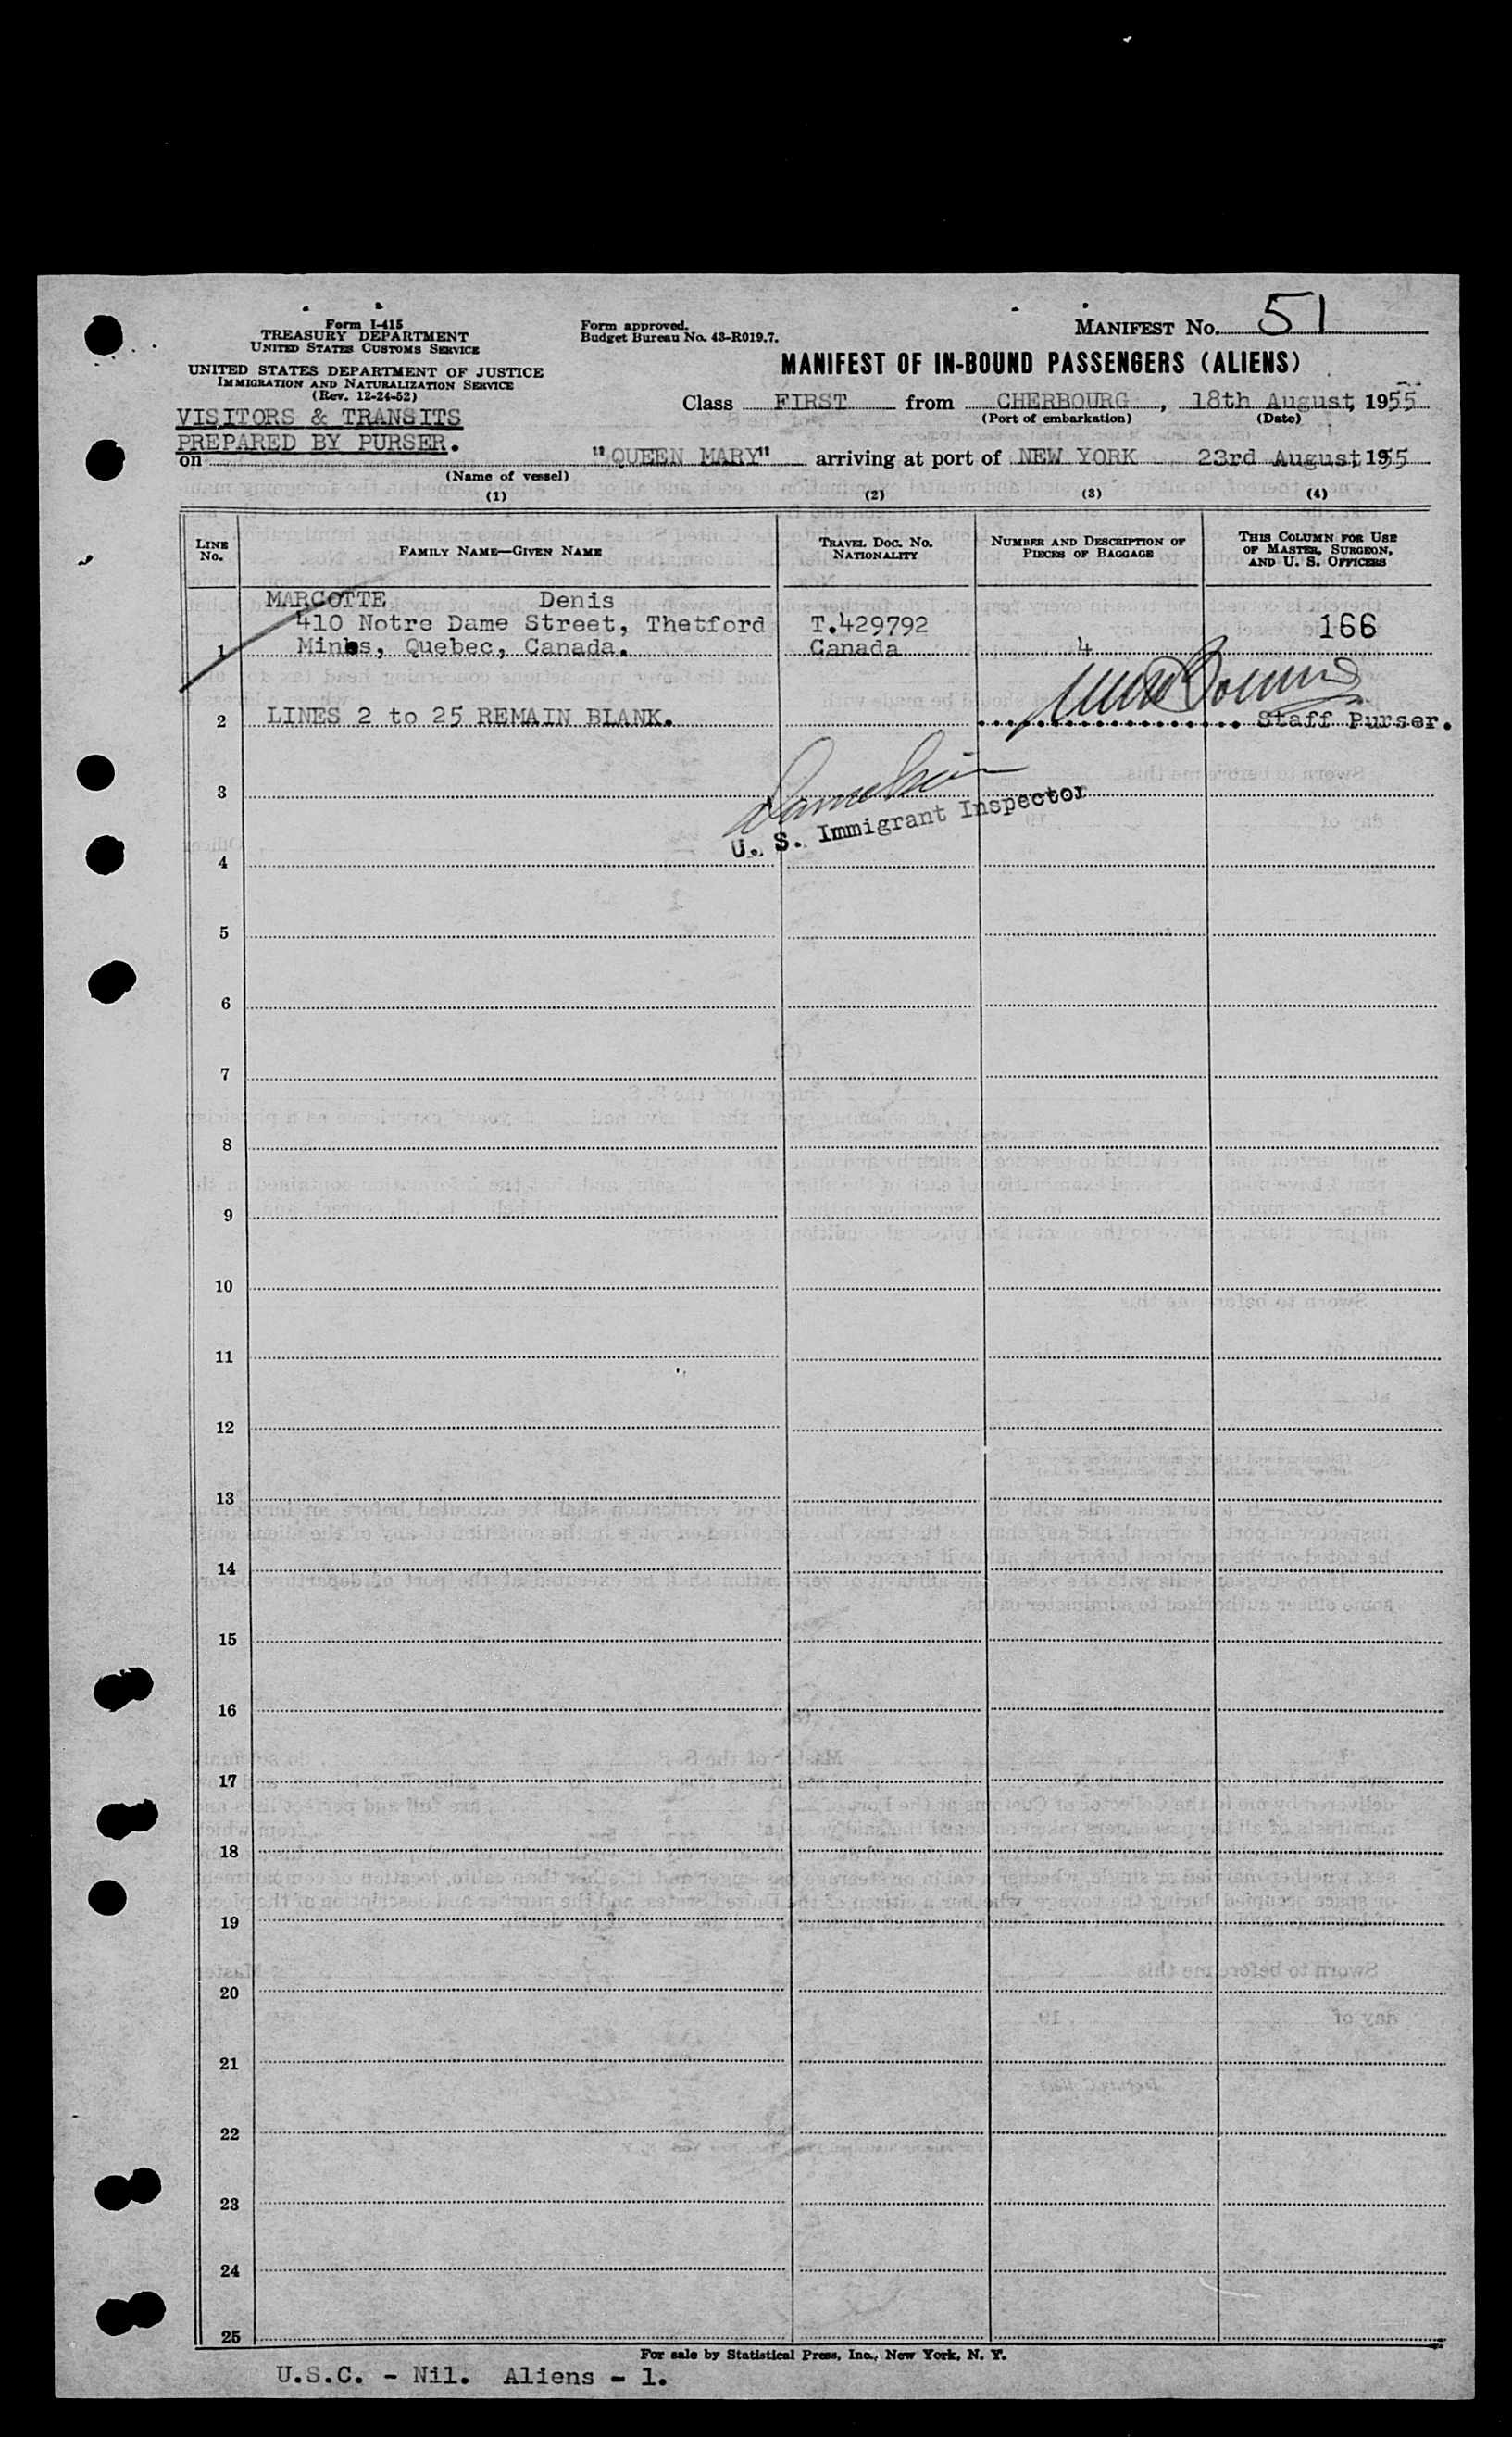 Form I-415
TREASURY DEPARTMENT
UNITED STATES CUSTOMS SERVICE
UNITED STATES DEPARTMENT OF JUSTICE
IMMIGRATION AND NATURALIZATION SERVICE
(Rev. 12-24-52)
VISITORS & TRANSITS
PREPARED BY PURSER.
Form approved.
Budget Bureau No. 43-R019.7.
MANIFEST No. 51
MANIFEST OF IN-BOUND PASSENGERS (ALIENS)
Class FIRST from CHERBOURG, 18th August, 1955
(Port of embarkation) (Date)
on "QUEEN MARY" arriving at port of NEW YORK 23rd August, 1955
(Name of vessel)
(1) (2) (3) (4)
LINE No. FAMILY NAME—GIVEN NAME TRAVEL DOC. NO. NATIONALITY NUMBER AND DESCRIPTION OF PIECES OF BAGGAGE THIS COLUMN FOR USE OF MASTER, SURGEON, AND U. S. OFFICERS
MARCOTTE Denis
410 Notre Dame Street, Thetford T.429792 166
1 Mines, Quebec, Canada. Canada 4
2 LINES 2 to 25 REMAIN BLANK. Staff Purser.
3
U. S. Immigrant Inspector
4
5
6
7
8
9
10
11
12
13
14
15
16
17
18
19
20
21
22
23
24
25
For sale by Statistical Press, Inc., New York, N. Y.
U.S.C. - Nil. Aliens - 1.